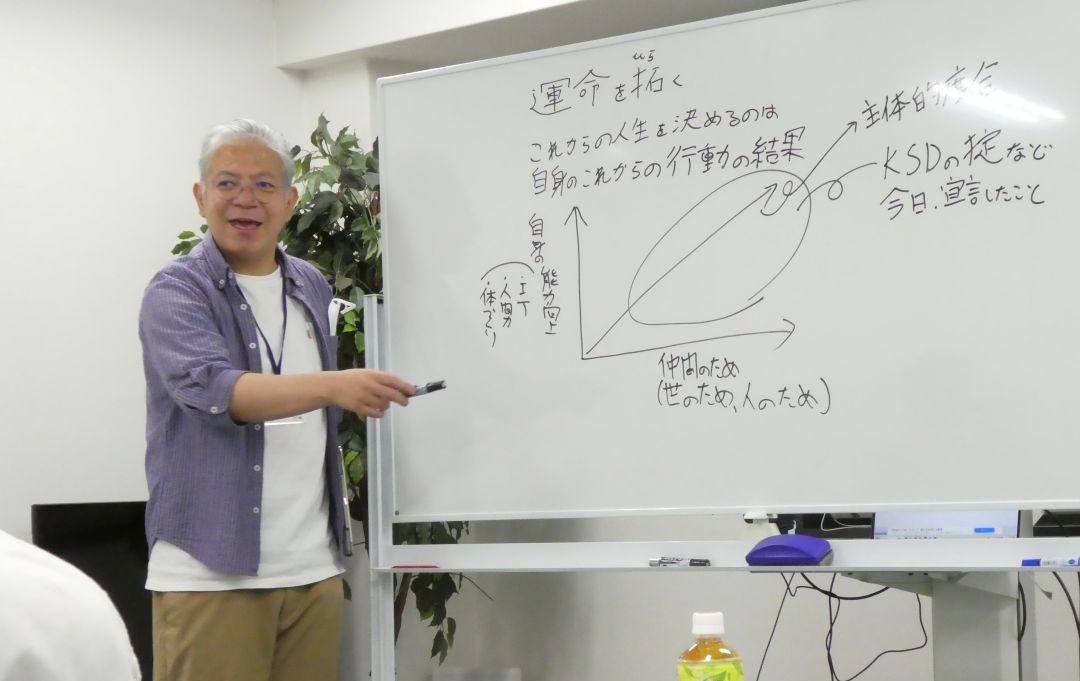 運命を拓く
ひら
これからの人生を決めるのは
自身のこれからの行動の結果
主体的
KSDの掟など
今日、宣言したこと
自身の能力向上
・IT
・人間力
・体づくり
仲間のため
(世のため、人のため)